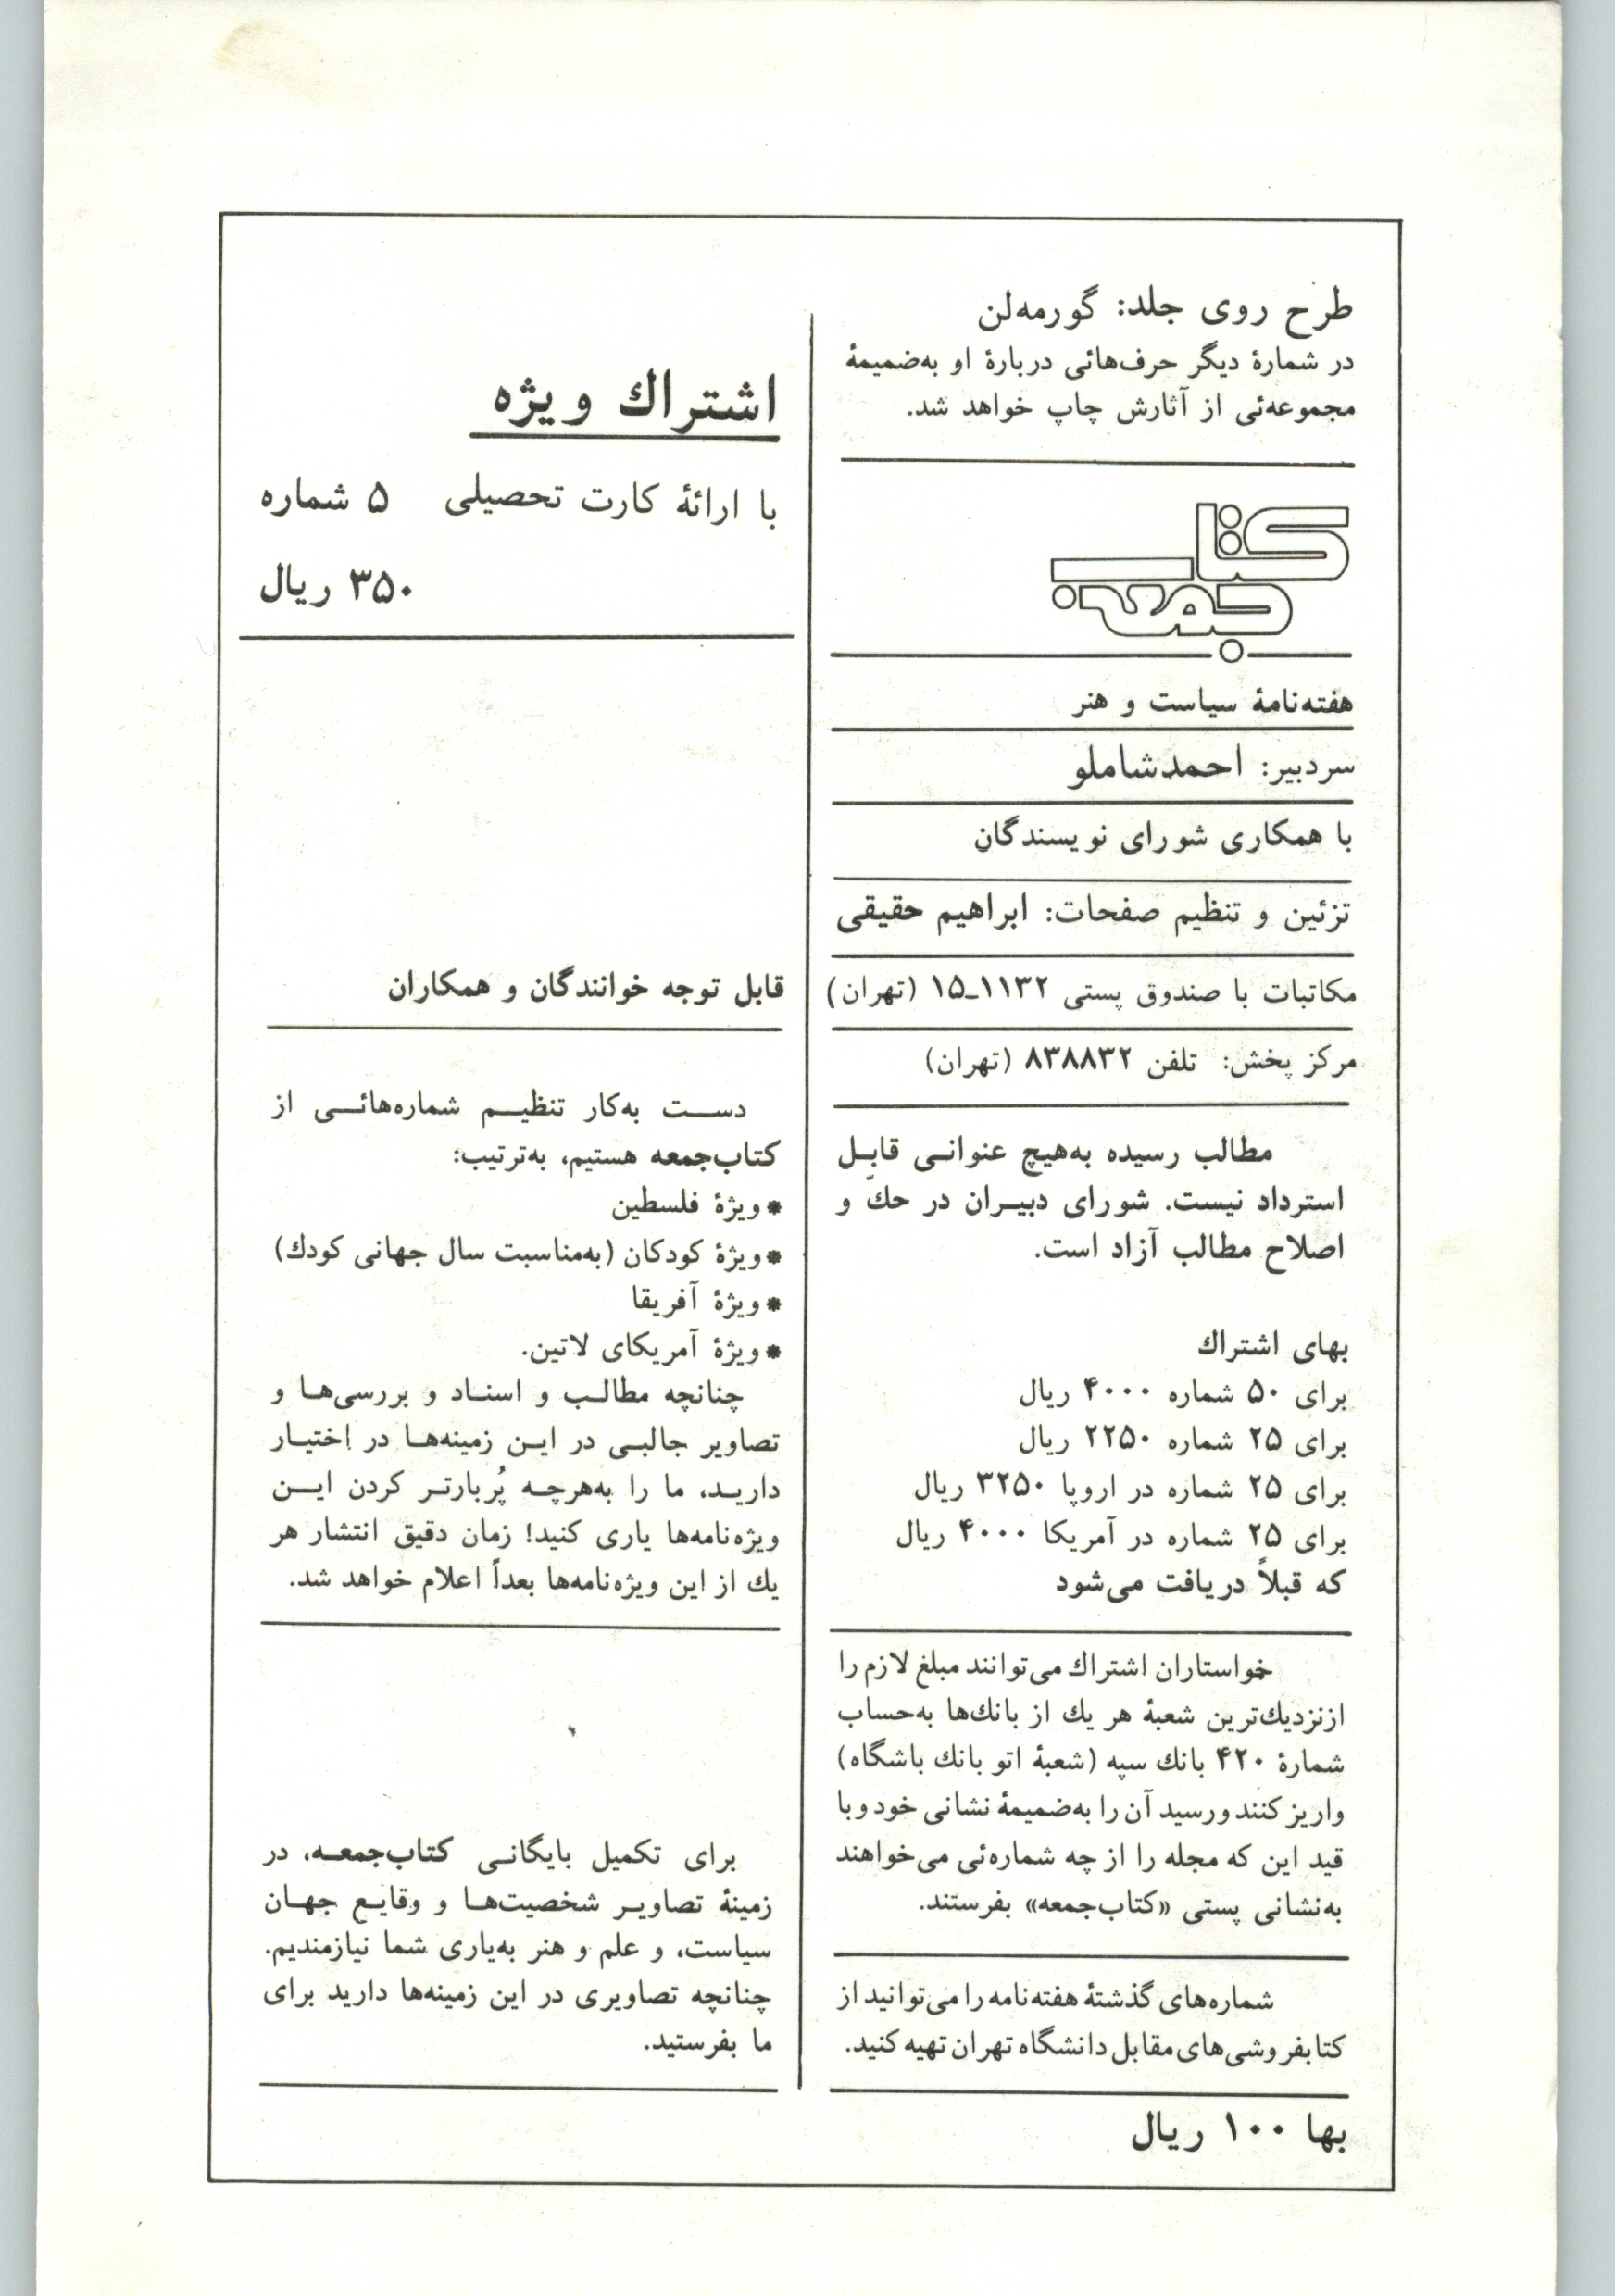 طرح روی جلد: گورمه‌لن
در شمارهٔ دیگر حرف‌هائی دربارهٔ او به‌ضمیمهٔ
مجموعه‌ئی از آثارش چاپ خواهد شد.
کتاب
جمعه
هفته‌نامهٔ سیاست و هنر
سردبیر: احمدشاملو
با همکاری شورای نویسندگان
تزئین و تنظیم صفحات: ابراهیم حقیقی
مکاتبات با صندوق پستی ۱۱۳۲ـ۱۵ (تهران)
مرکز پخش: تلفن ۸۳۸۸۳۲ (تهران)
مطالب رسیده به‌هیچ عنوانی قابل
استرداد نیست. شورای دبیران در حكّ و
اصلاح مطالب آزاد است.
بهای اشتراك
برای ۵۰ شماره ۴۰۰۰ ریال
برای ۲۵ شماره ۲۲۵۰ ریال
برای ۲۵ شماره در اروپا ۳۲۵۰ ریال
برای ۲۵ شماره در آمریکا ۴۰۰۰ ریال
که قبلاً دریافت می‌شود
خواستاران اشتراك می‌توانند مبلغ لازم را
ازنزدیك‌ترین شعبهٔ هر یك از بانك‌ها به‌حساب
شمارهٔ ۴۲۰ بانك سپه (شعبهٔ اتو بانك باشگاه)
واریز کنند و رسید آن را به‌ضمیمهٔ نشانی خود و با
قید این که مجله را از چه شماره‌ئی می‌خواهند
به‌نشانی پستی «کتاب‌جمعه» بفرستند.
شماره‌های گذشتهٔ هفته‌نامه را می‌توانید از
کتابفروشی‌های مقابل دانشگاه تهران تهیه کنید.
بها ۱۰۰ ریال
اشتراك ویژه
با ارائهٔ کارت تحصیلی ۵ شماره
۳۵۰ ریال
قابل توجه خوانندگان و همکاران
دست به‌کار تنظیم شماره‌هائی از
کتاب‌جمعه هستیم، به‌ترتیب:
* ویژهٔ فلسطین
* ویژهٔ کودکان (به‌مناسبت سال جهانی کودك)
* ویژهٔ آفریقا
* ویژهٔ آمریکای لاتین.
چنانچه مطالب و اسناد و بررسی‌ها و
تصاویر جالبی در این زمینه‌ها در اختیار
دارید، ما را به‌هرچه پُربارتر کردن این
ویژه‌نامه‌ها یاری کنید! زمان دقیق انتشار هر
یك از این ویژه‌نامه‌ها بعداً اعلام خواهد شد.
برای تکمیل بایگانی کتاب‌جمعه، در
زمینهٔ تصاویر شخصیت‌ها و وقایع جهان
سیاست، و علم و هنر به‌یاری شما نیازمندیم.
چنانچه تصاویری در این زمینه‌ها دارید برای
ما بفرستید.